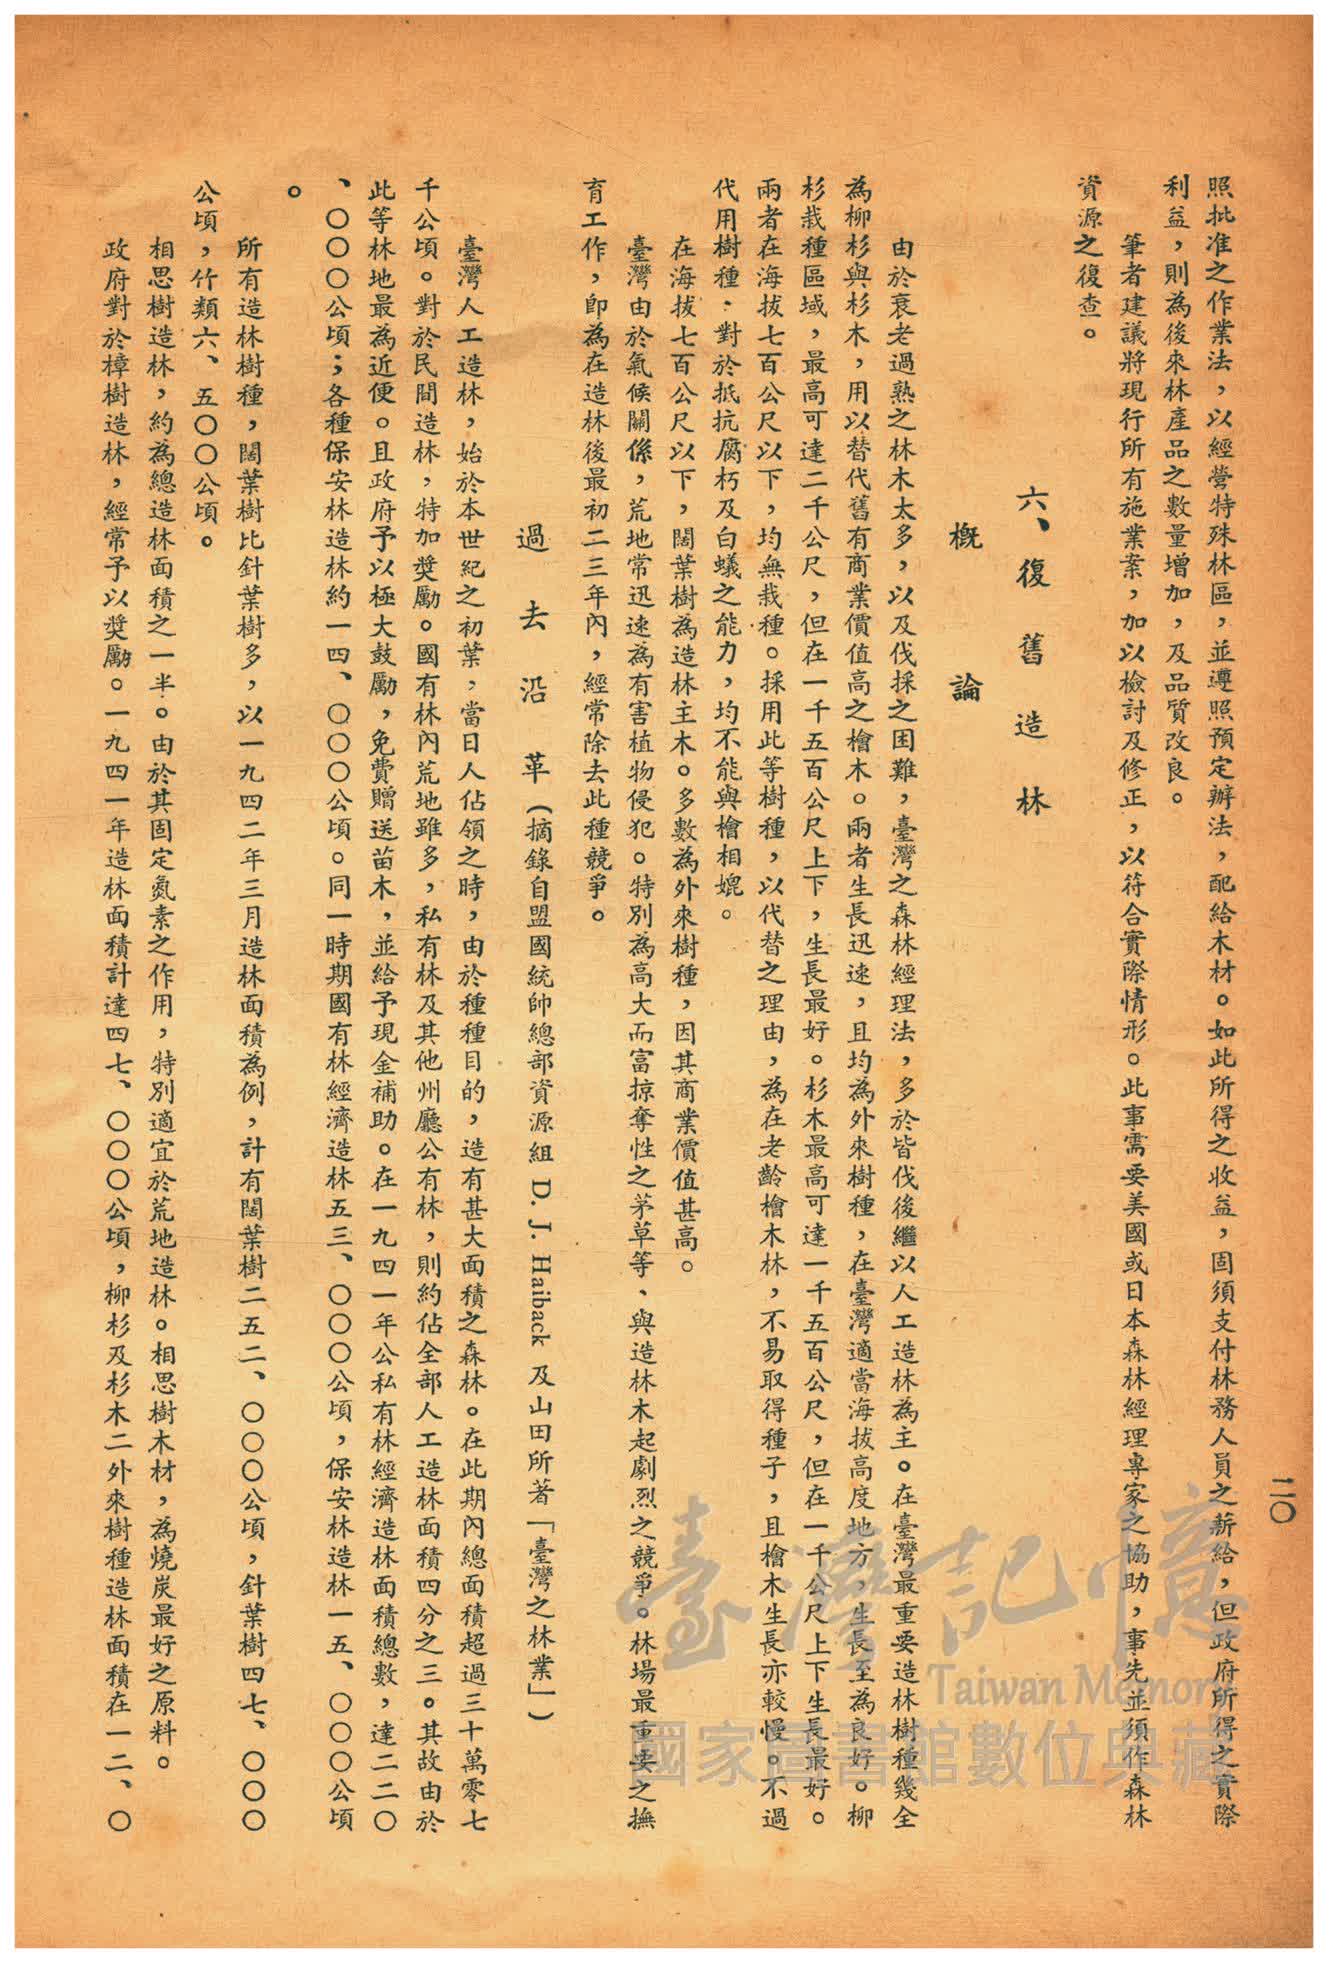 二〇
照批准之作業法，以經營特殊林區，並遵照預定辦法，配給木材。如此所得之收益，固須支付林務人員之薪給，但政府所得之實際
利益，則為後來林產品之數量增加，及品質改良。
筆者建議將現行所有施業案，加以檢討及修正，以符合實際情形。此事需要美國或日本森林經理專家之協助，事先並須作森林
資源之復查。
六、復舊造林
概論
由於衰老過熟之林木太多，以及伐採之困難，臺灣之森林經理法，多於皆伐後繼以人工造林為主。在臺灣最重要造林樹種幾全
為柳杉與杉木，用以替代舊有商業價值高之檜木。兩者生長迅速，且均為外來樹種，在臺灣適當海拔高度地方，生長至為良好。柳
杉栽種區域，最高可達二千公尺，但在一千五百公尺上下，生長最好。杉木最高可達一千五百公尺，但在一千公尺上下生長最好。
兩者在海拔七百公尺以下，均無栽種。採用此等樹種，以代替之理由，為在老齡檜木林，不易取得種子，且檜木生長亦較慢。不過
代用樹種：對於抵抗腐朽及白蟻之能力，均不能與檜相媲。
在海拔七百公尺以下，闊葉樹為造林主木。多數為外來樹種，因其商業價值甚高。
臺灣由於氣候關係，荒地常迅速為有害植物侵犯。特別為高大而富掠奪性之茅草等、與造林木起劇烈之競爭。林場最重要之撫
育工作，卽為在造林後最初二三年內，經常除去此種競爭。
過去沿革（摘錄自盟國統帥總部資源組 D. J. Haiback 及山田所著「臺灣之林業」）
臺灣人工造林，始於本世紀之初葉，當日人佔領之時，由於種種目的，造有甚大面積之森林。在此期內總面積超過三十萬零七
千公頃。對於民間造林，特加獎勵。國有林內荒地雖多，私有林及其他州廳公有林，則約佔全部人工造林面積四分之三。其故由於
此等林地最為近便。且政府予以極大鼓勵，免費贈送苗木，並給予現金補助。在一九四一年公私有林經濟造林面積總數，達二二〇
、〇〇〇公頃；各種保安林造林約一四、〇〇〇公頃。同一時期國有林經濟造林五三、〇〇〇公頃，保安林造林一五、〇〇〇公頃
。
所有造林樹種，闊葉樹比針葉樹多，以一九四二年三月造林面積為例，計有闊葉樹二五二、〇〇〇公頃，針葉樹四七、〇〇〇
公頃，竹類六、五〇〇公頃。
相思樹造林，約為總造林面積之一半。由於其固定氮素之作用，特別適宜於荒地造林。相思樹木材，為燒炭最好之原料。
政府對於樟樹造林，經常予以獎勵。一九四一年造林面積計達四七、〇〇〇公頃，柳杉及杉木二外來樹種造林面積在一二、〇
臺灣記憶
Taiwan Memory
國家圖書館數位典藏